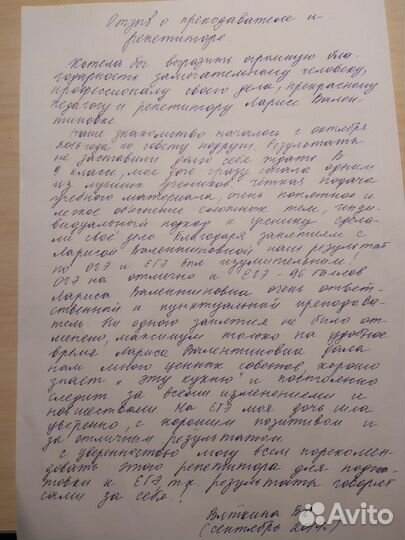 Отзыв о преподавателе и
репетиторе.
Хотела бы выразить огромную бла-
годарность замечательному человеку,
профессионалу своего дела, прекрасному
педагогу и репетитору Ларисе Вален-
тиновне
Наше знакомство началось с октября
2016 года по совету подруги. Результаты
не заставили долго себе ждать В
классе, моя дочь сразу стала одним
из лучших учеников Чёткая подача
учебного материала, очень понятное и
легкое объяснение сложных тем, инди-
видуальный подход к ученику сдела-
ли своё дело Благодаря занятиям с
Ларисой Валентиновной наш результат
по ОГЭ и ЕГЭ был изумительным!
ОГЭ на отлично и ЕГЭ - 96 баллов
Лариса Валентиновна очень ответст-
венной и пунктуальный преподава-
тель. Ни одного занятия не было от-
менено, максимум только на удобное
время Лариса Валентиновна дала
нам много ценных советов, хорошо
знает "эту кухню" и постоянно
следит за всеми изменениями и
новшествами На ЕГЭ моя дочь шла
уверенно, с хорошим позитивом и
за отличным результатом
С уверенностью могу всем порекомен-
довать этого репетитора для подго-
товки к ЕГЭ т.к. результаты говорят
сами за себя!
Вяткина
(сентябрь
Avito